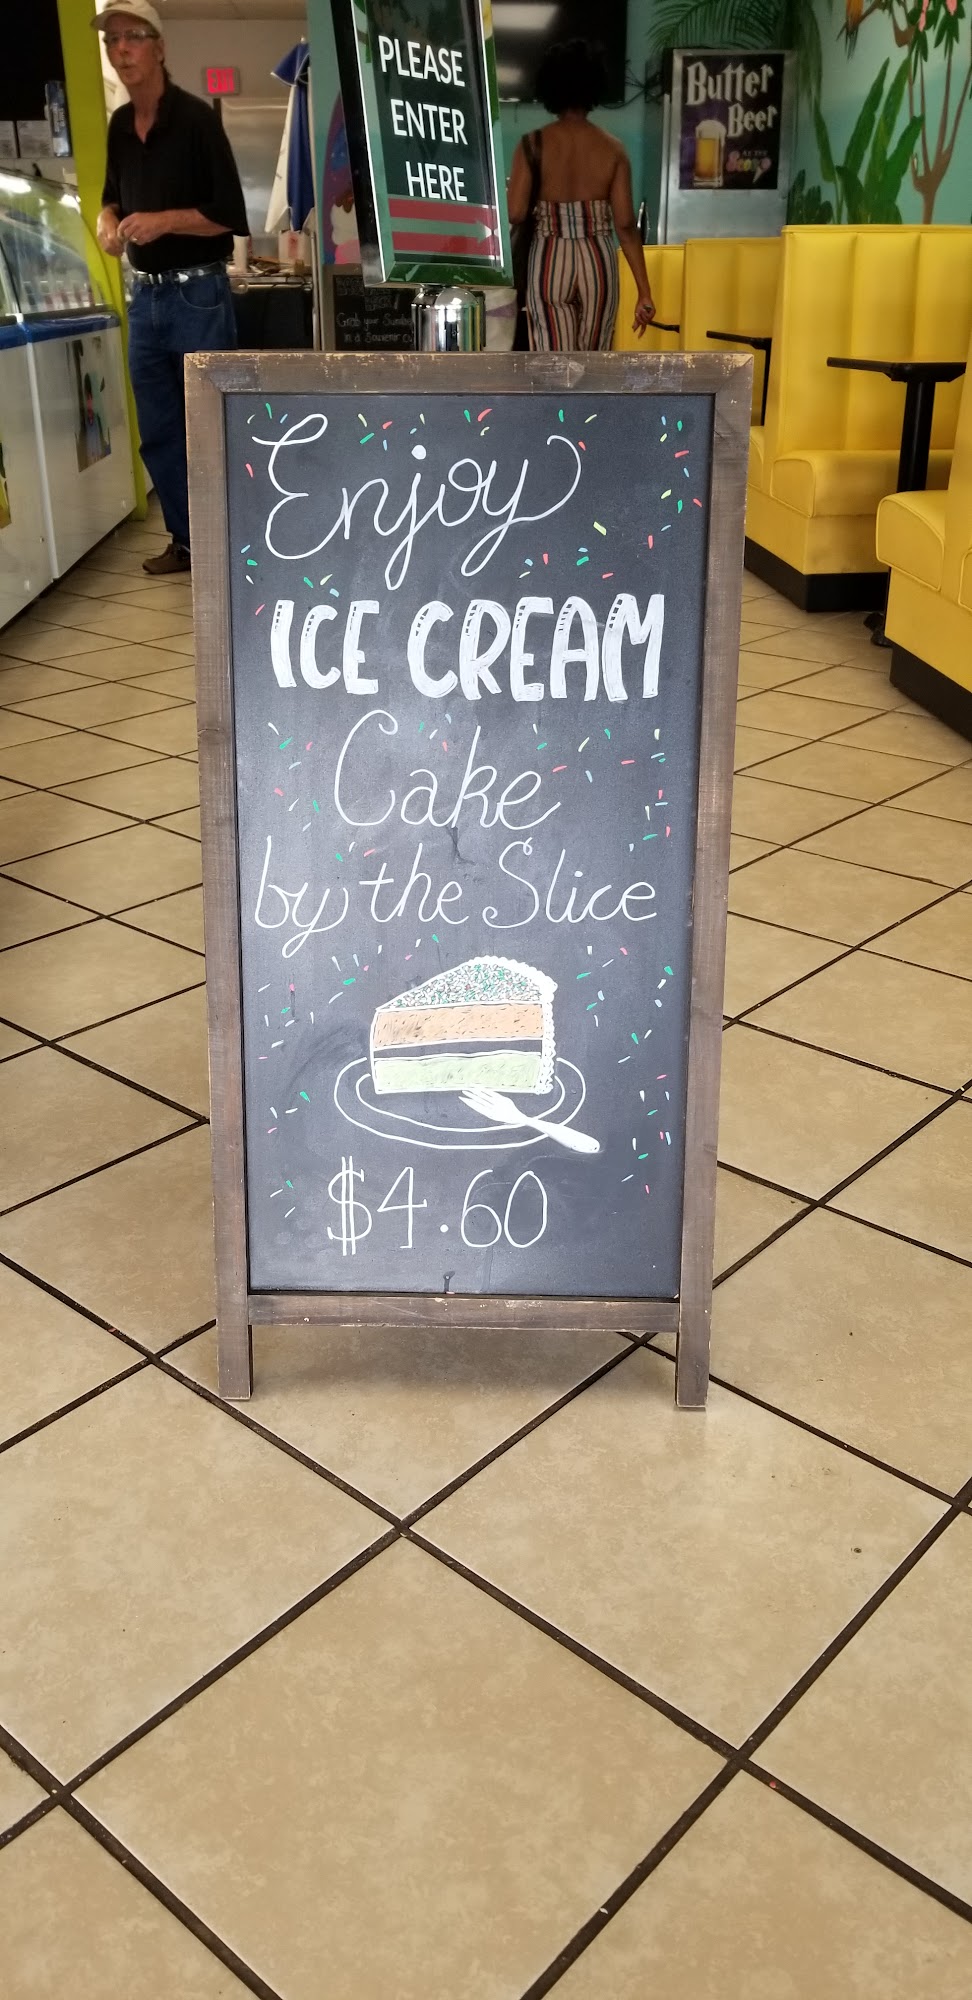 PLEASE
ENTER
HERE
EXIT
Butter
Beer
Grab your Sundae
in a Souvenir
Enjoy
ICE CREAM
Cake
by the Slice
$4.60